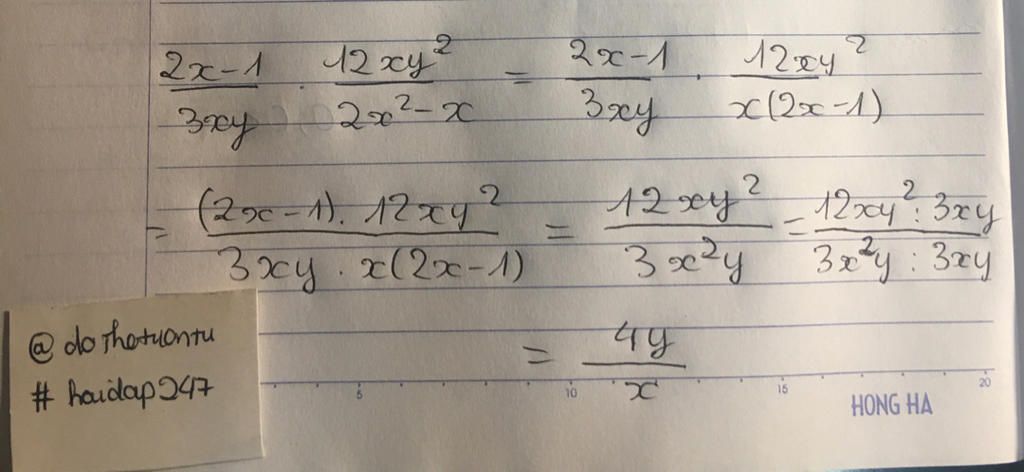 (2x-1)/(3xy) . (12xy²)/(2x²-x) = (2x-1)/(3xy) . (12xy²)/(x(2x-1))
= ((2x-1). 12xy²)/(3xy . x(2x-1)) = (12xy²)/(3x²y) = (12xy² : 3xy)/(3x²y : 3xy)
= (4y)/(x)
@ dothetuantu
# hoidap247
5 10 15 20
HONG HA